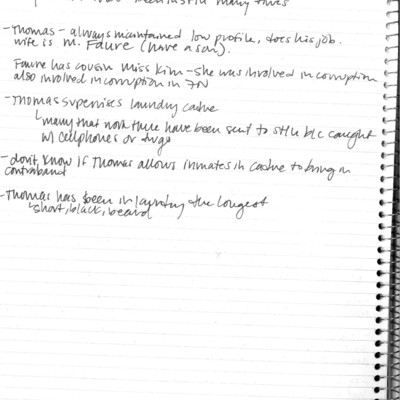 many times
-Thomas - always maintained low profile, does his job.
wife is M. Faure (have a son).
Faure has cousin Miss Kim - she was involved in corruption
also involved in corruption in 7N
-Thomas supervises laundry cache
many that work there have been sent to SHU b/c caught
w/ cellphones or drugs
-don't know if Thomas allows inmates in cache to bring in
contraband
-Thomas has been in laundry the longest
short, black, beard